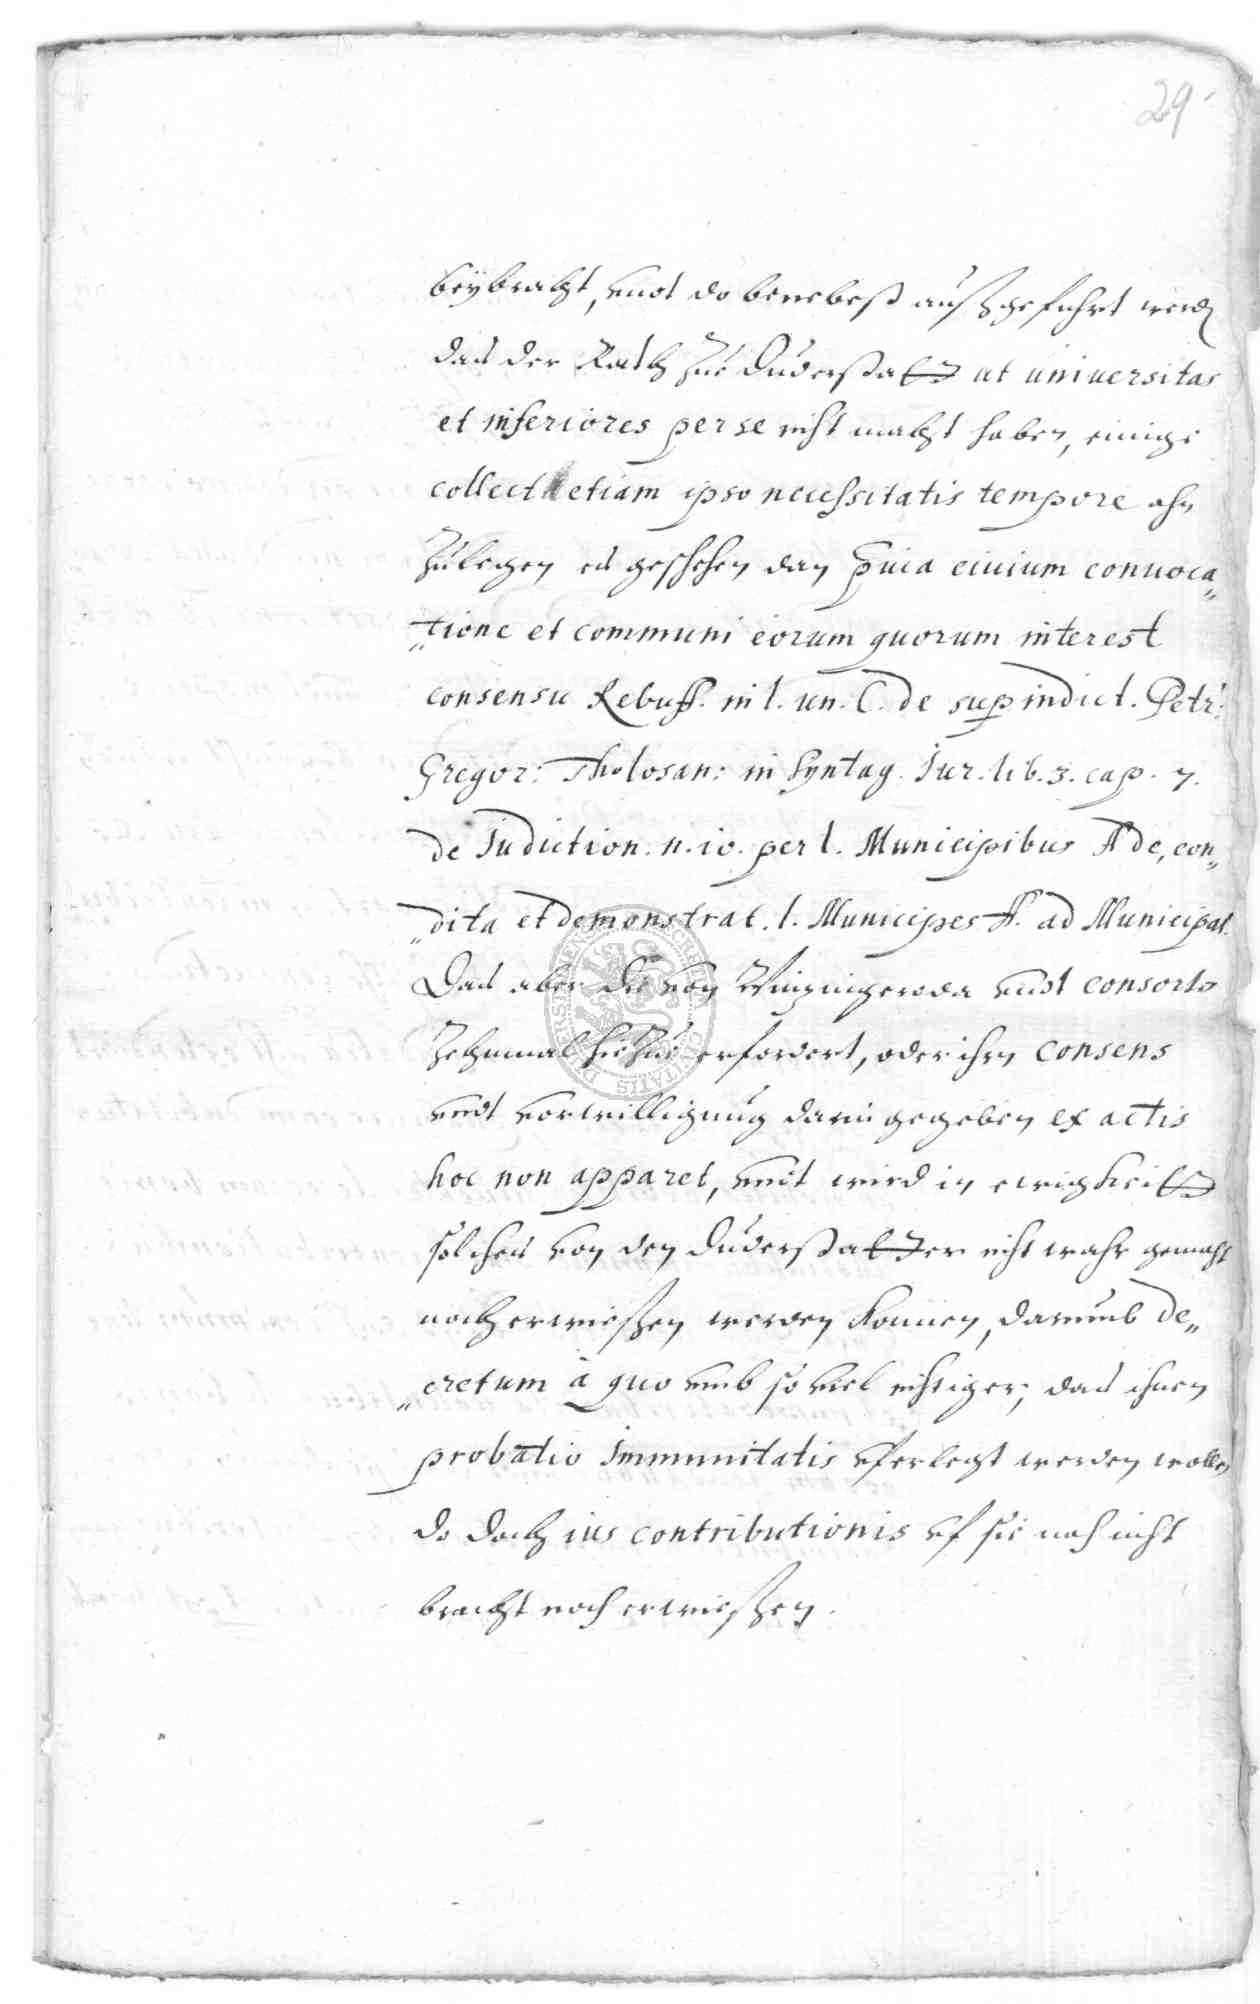 29
beÿbracht, vndt do benebest außgefuhrt werden
das der Rath zue Duderstadt ut universitas
et inferiores per se nicht macht haben, einige
collect etiam ipso necessitatis tempore ahn
zulegen es geschehen dan pvia civium convoca„
„tione et communi eorum quorum interest
consensu Rebuff. in l. un. C. de sup indict. Petr:
Gregor: Tholosan: in Syntag. Iur. lib. 3. cap. 7.
de Indiction. n. 10. per l. Municipibus ff de, con„
„dita et demonstrat. l. Municipes ff. ad Municipal.
Das aber die von Winzingeroda vndt consorten
zehnmal hiezue erfordert, oder ihrn consens
vndt vorwilligung darin gegeben ex actis
hoc non apparet, vndt wird in ewigkeit
solches von den Duderstadter nicht wahr gemacht
noch erwiesen werden konnen, darumb de„
„cretum à quo vmb so viel nichtiger, das ihnen
probatio immunitatis vferlegt werden wollen
do doch ius contributionis vf sie noch nicht
bracht noch erwiesen.